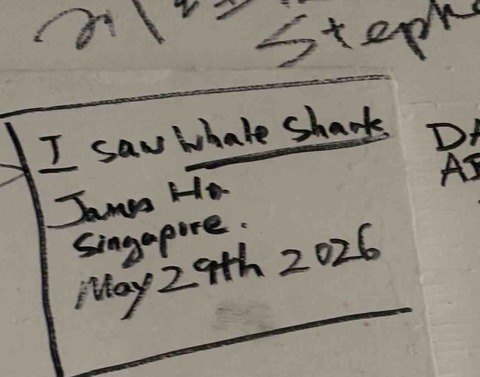 Steph
I saw Whale Shark
James Ho
Singapore.
May 29th 2026
DA
AB